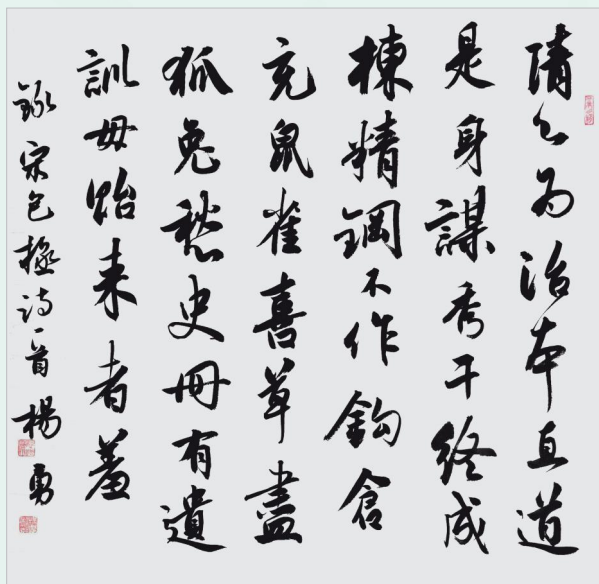 清心为治本直道
是身謀秀干終成
棟精鋼不作鉤倉
充鼠雀喜草盡
狐兔愁史冊有遺
訓毋貽来者羞
録宋包拯诗一首楊勇